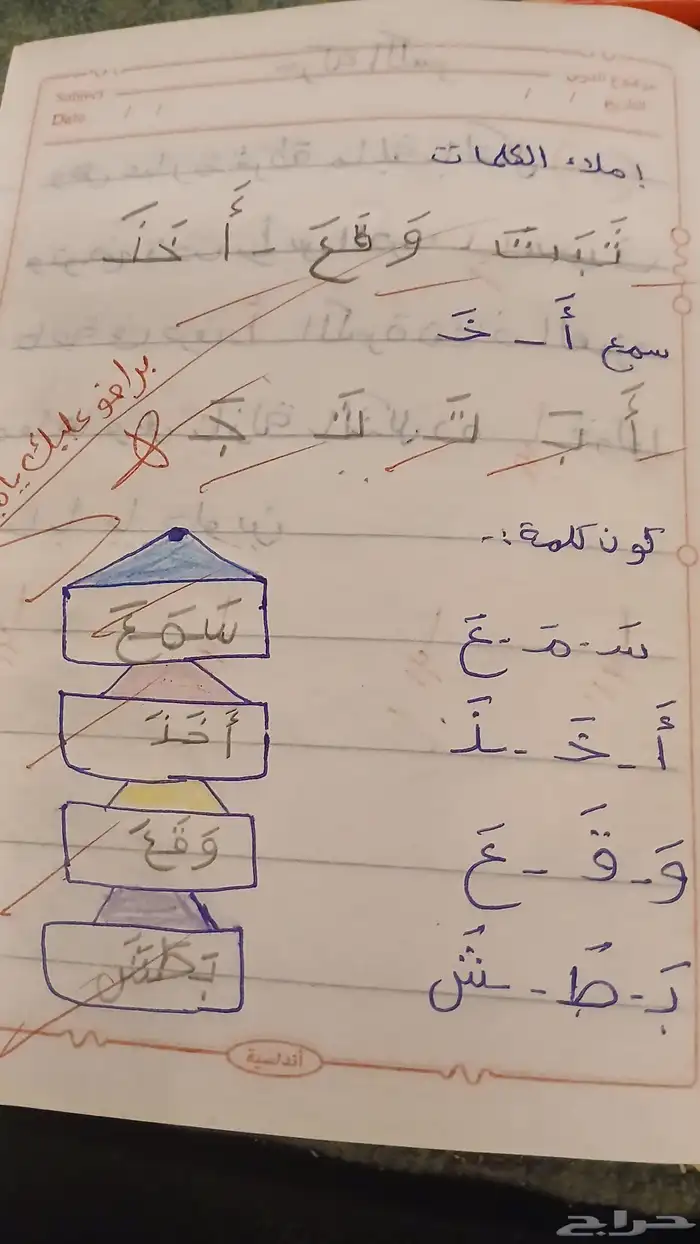 Subject
موضوع الدرس
Date / /
/ / التاريخ
إملاء الكلمات
ثَبَتَ وَقَعَ - أَخَذَ
سمع أَ - خَ
أَ بَ تَ ثَ جَ
برافو عليك يا
كون كلمة :-
سَ - مَ - عَ
سَمَعَ
أَ - خَ - ذَ
أَخَذَ
وَ - قَ - عَ
وَقَعَ
بَ - طَ - شَ
بَطَشَ
أندلسية
حراج